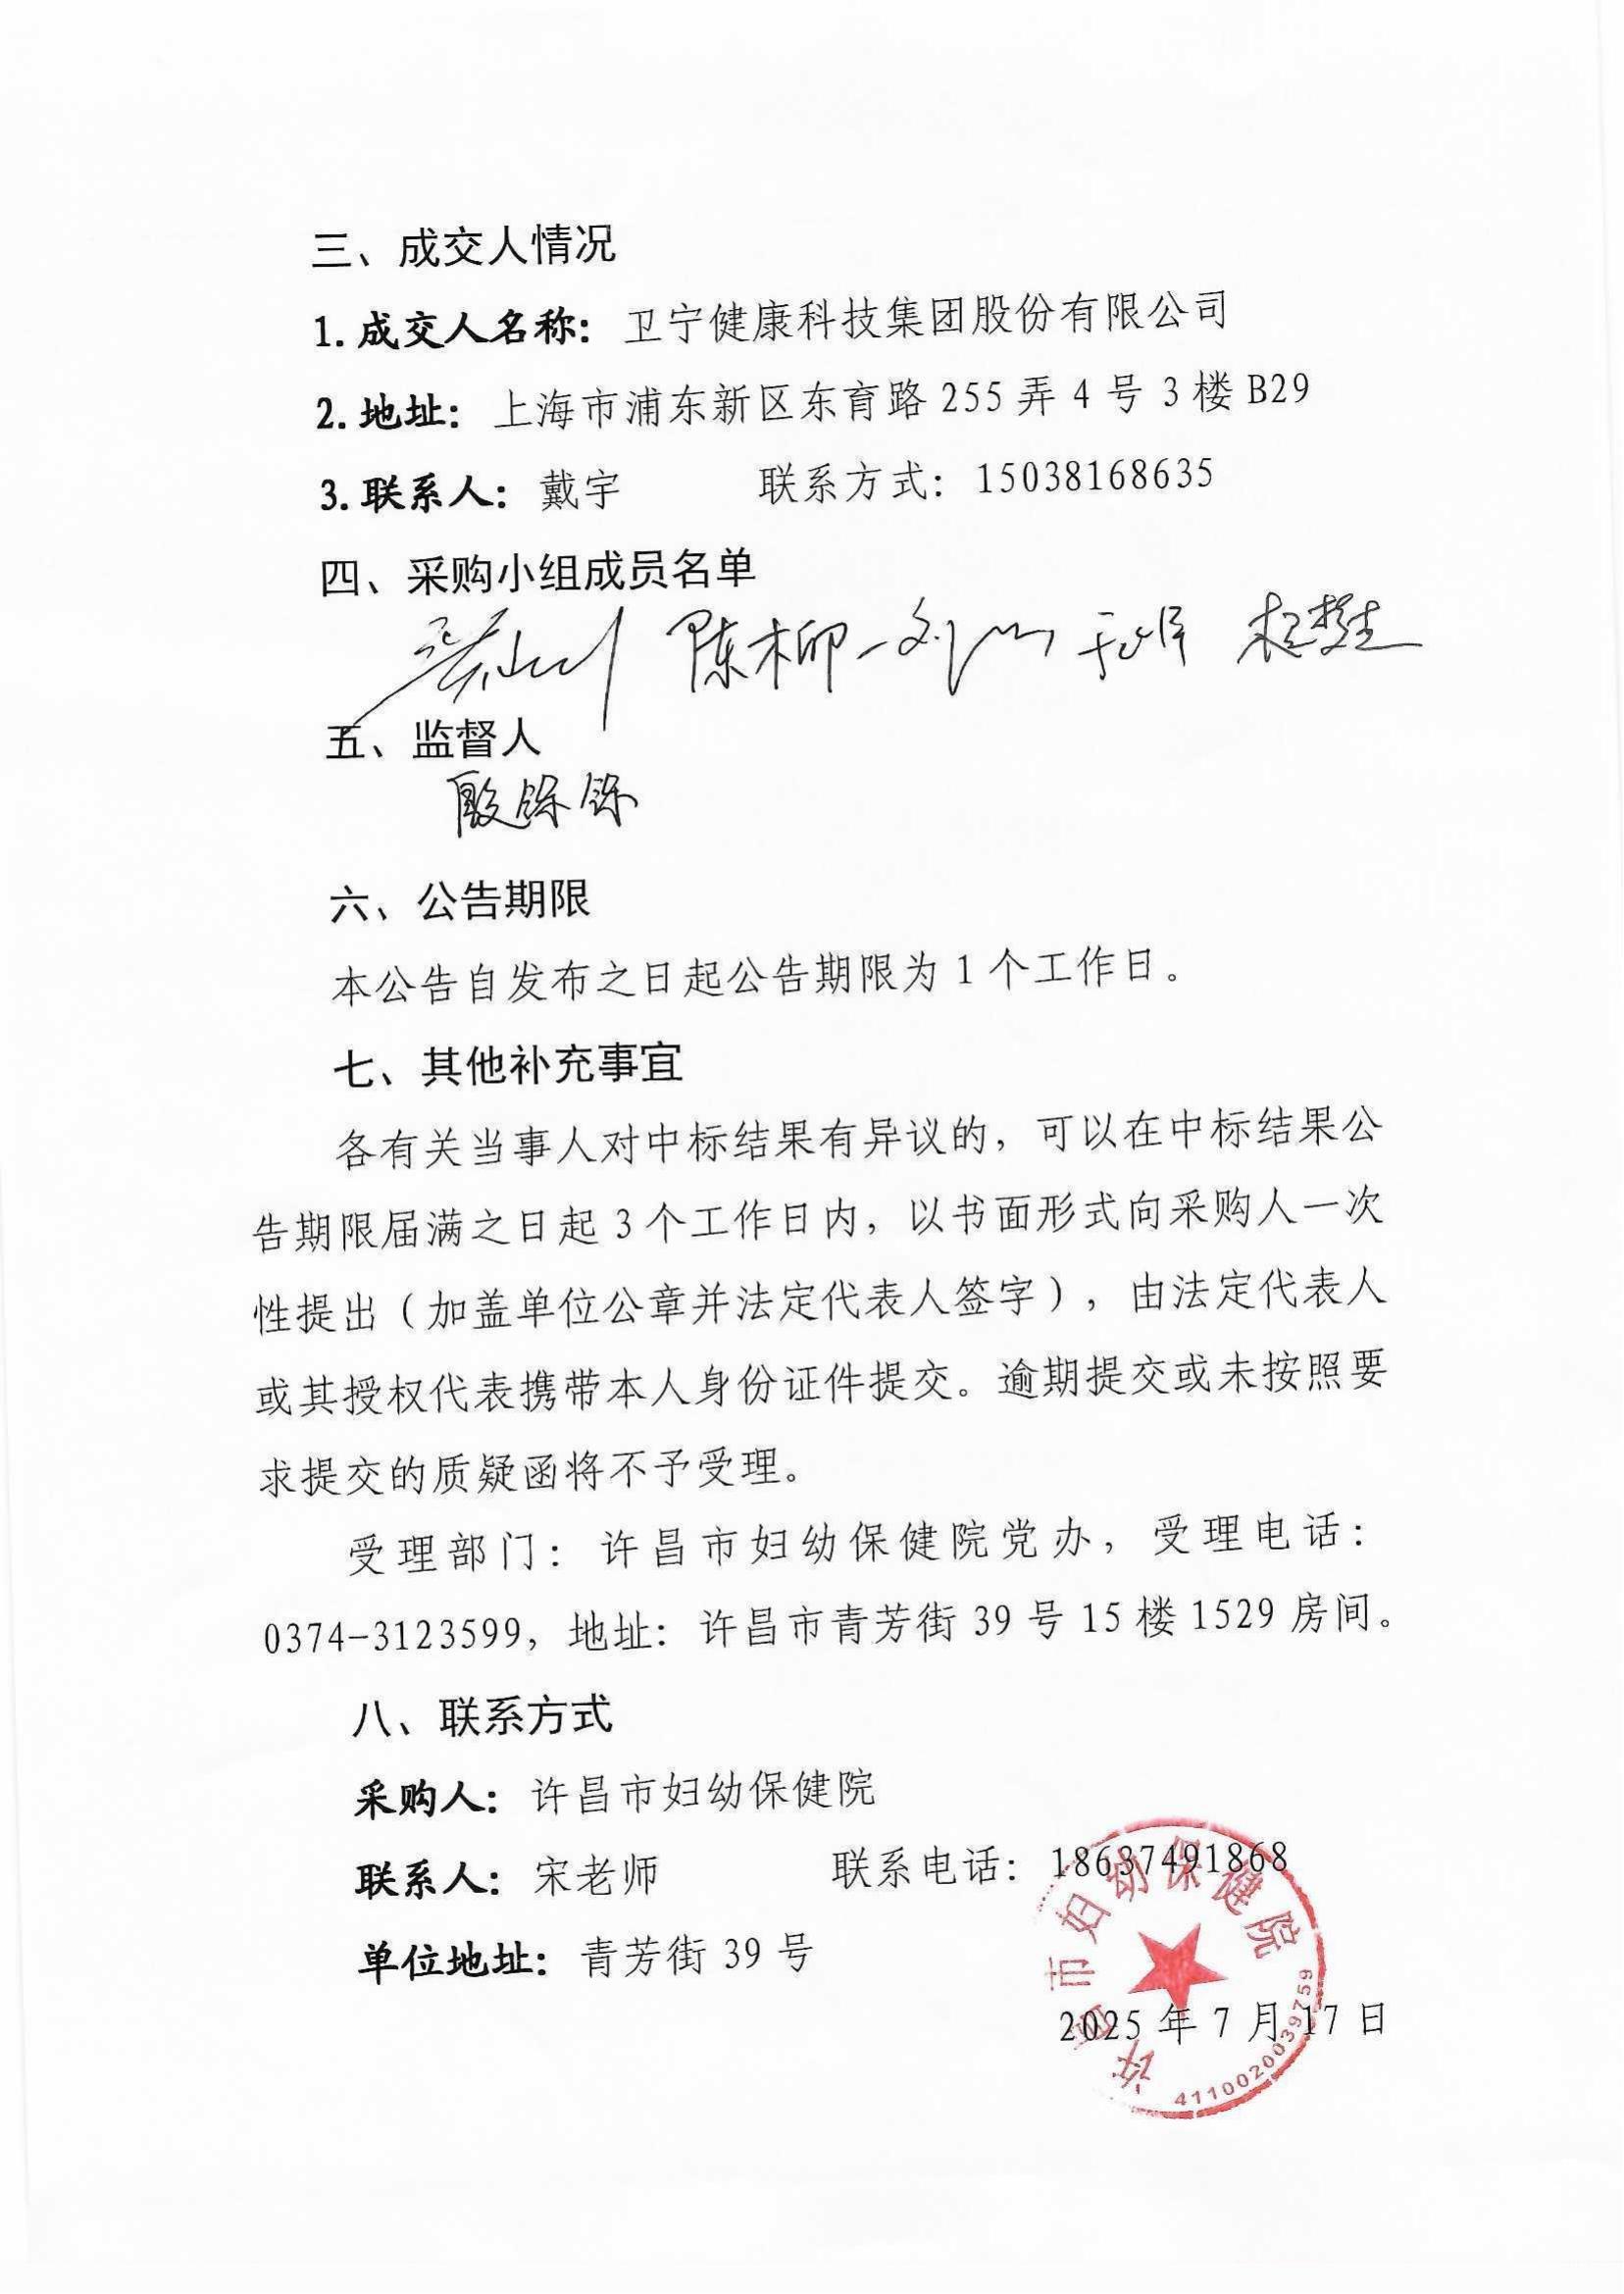 三、成交人情况
1.成交人名称：卫宁健康科技集团股份有限公司
2.地址：上海市浦东新区东育路255弄4号3楼B29
3.联系人：戴宇 联系方式：15038168635
四、采购小组成员名单
陈柳一
五、监督人
殷铄铄
六、公告期限
本公告自发布之日起公告期限为1个工作日。
七、其他补充事宜
各有关当事人对中标结果有异议的，可以在中标结果公
告期限届满之日起3个工作日内，以书面形式向采购人一次
性提出（加盖单位公章并法定代表人签字），由法定代表人
或其授权代表携带本人身份证件提交。逾期提交或未按照要
求提交的质疑函将不予受理。
受理部门：许昌市妇幼保健院党办，受理电话：
0374-3123599，地址：许昌市青芳街39号15楼1529房间。
八、联系方式
采购人：许昌市妇幼保健院
联系人：宋老师 联系电话：18637491868
单位地址：青芳街39号
2025年7月17日
许昌市妇幼保健院
4110020039759